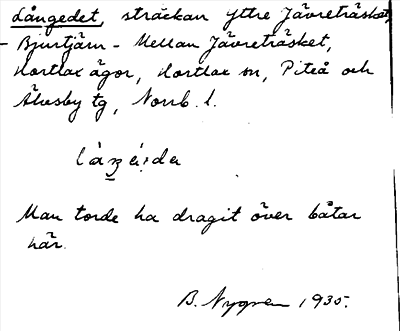 Långedet, sträckan Yttre Jävreträsket
- Bjurtjärn - Mellan Jävreträsket,
Hortlax ägor, Hortlax sn, Piteå och
Älvsby tg, Norrb. l.
Man torde ha dragit över båtar
här.
B. Nygren 1935.